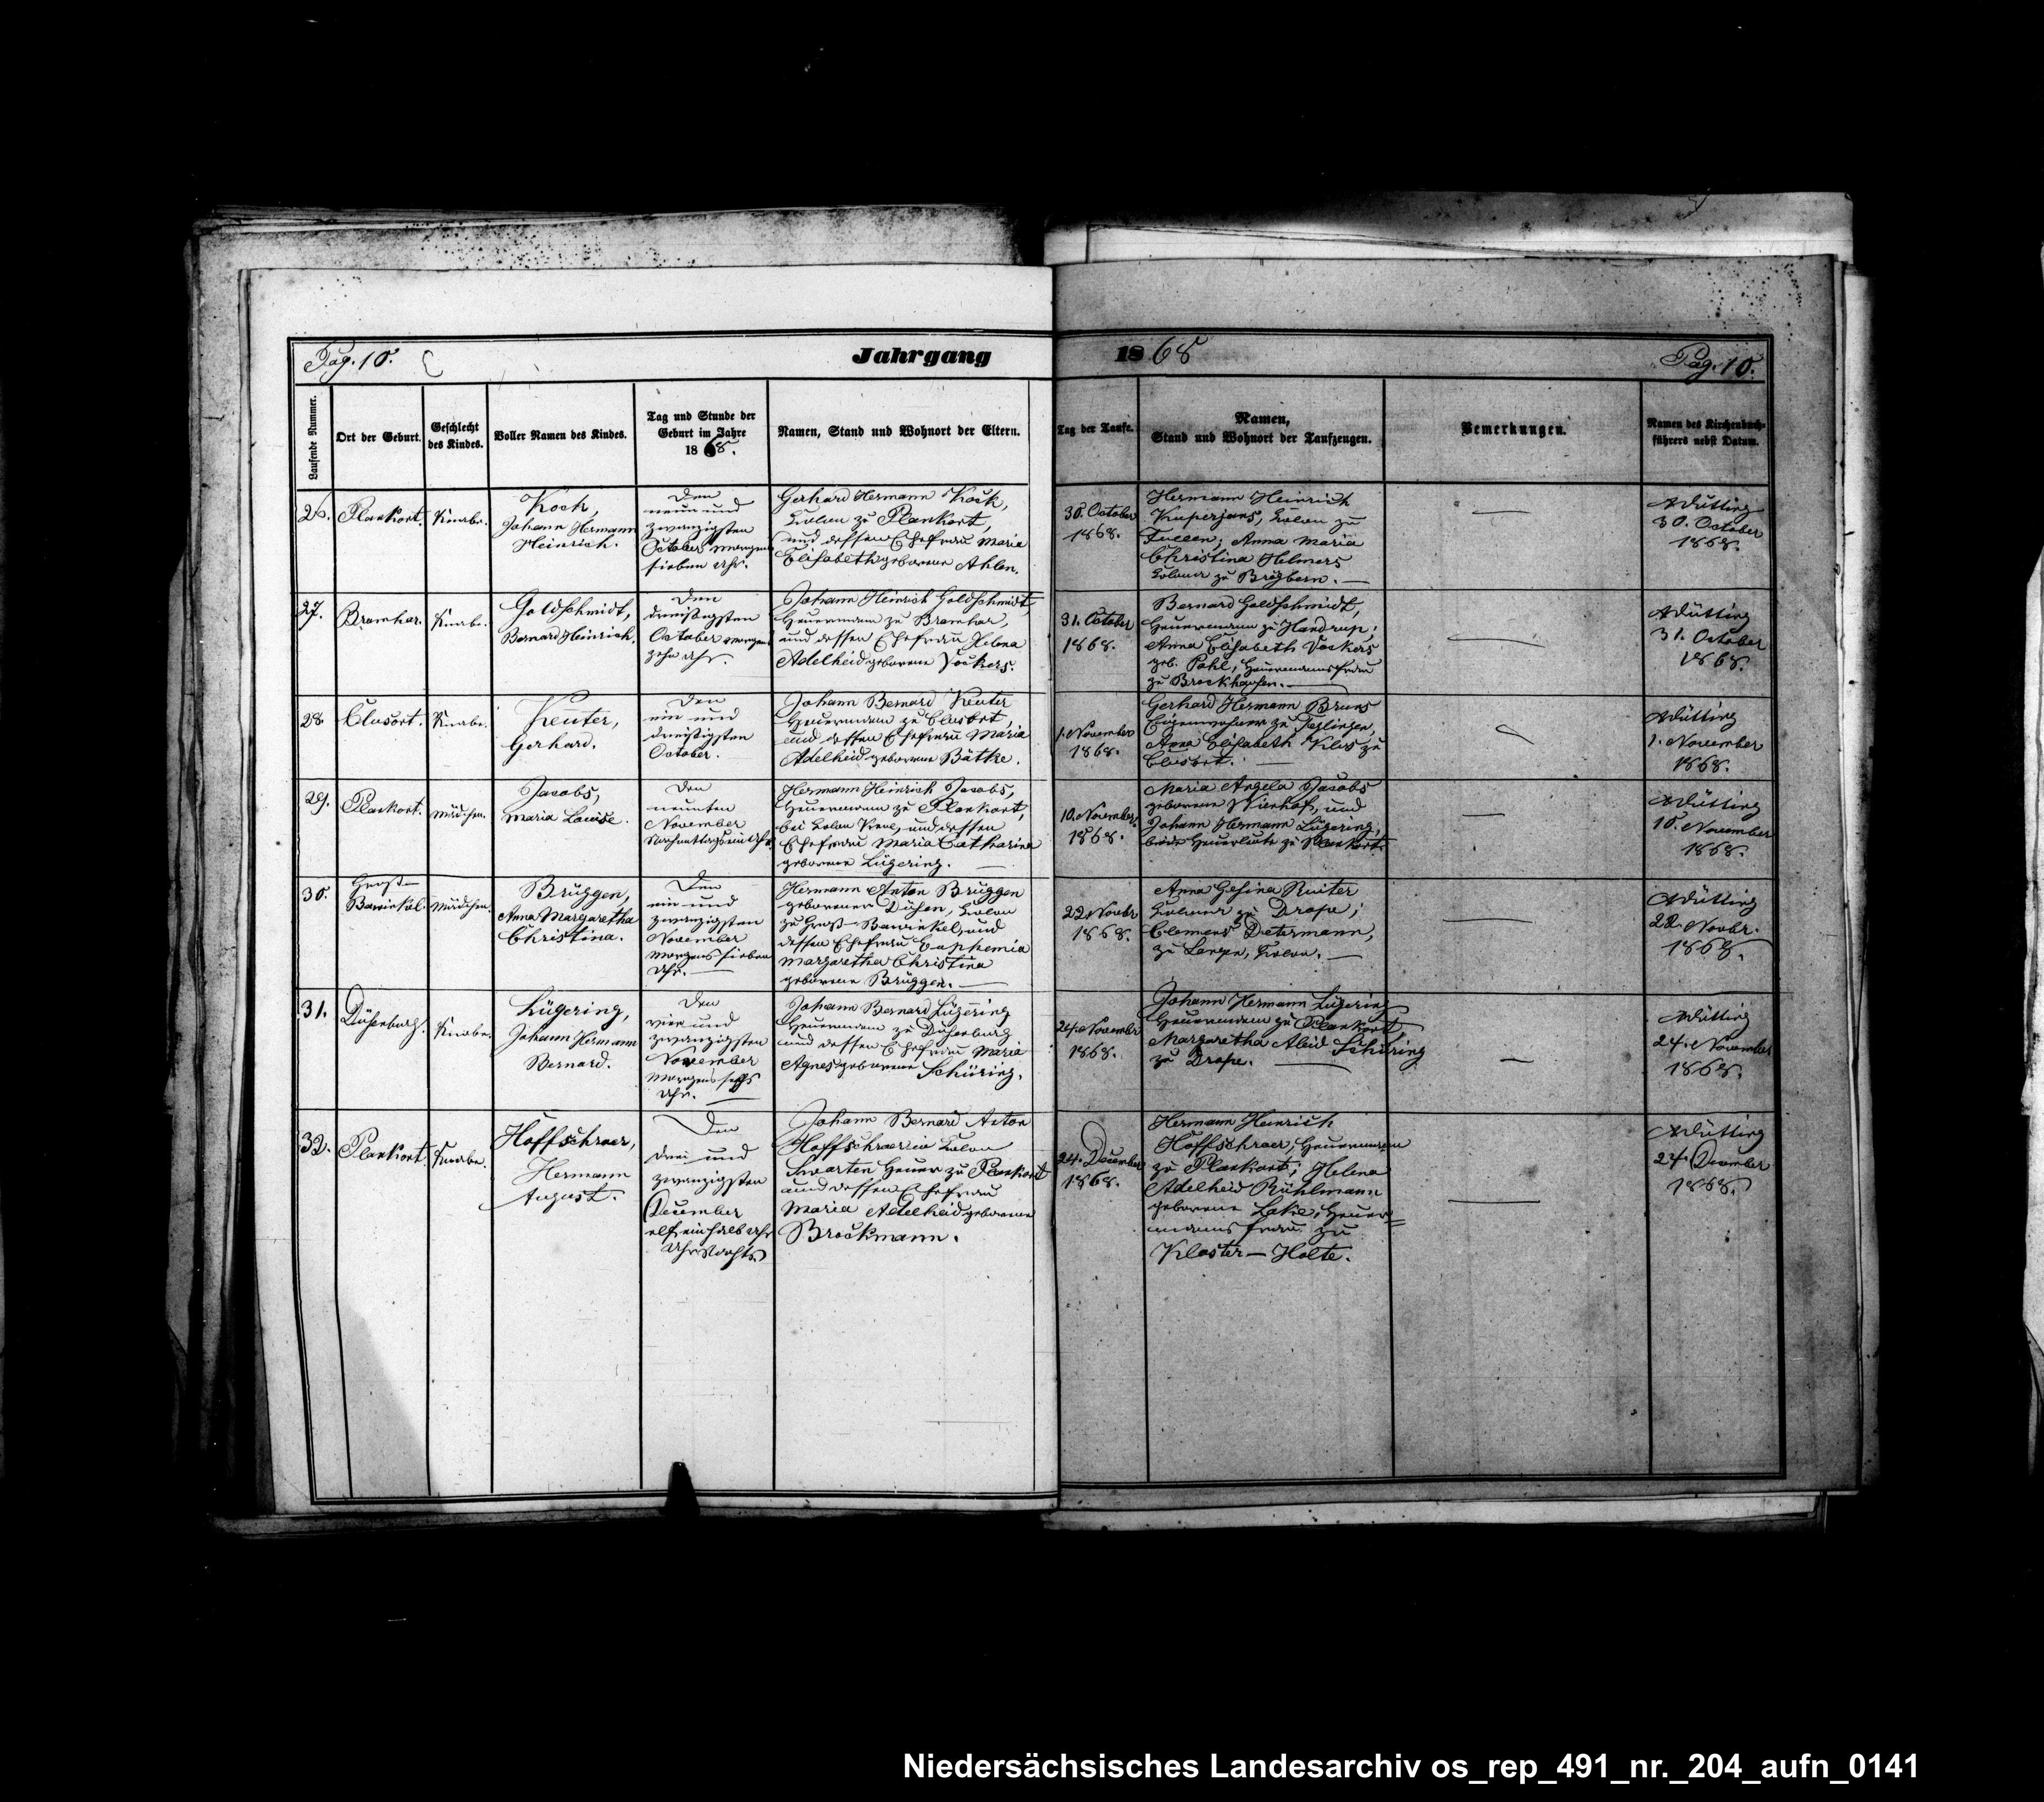 Pag. 10.
Jahrgang
1868
Pag. 10.
Laufende Nummer.
Ort der Geburt.
Geschlecht
des Kindes.
Voller Namen des Kindes.
Tag und Stunde der
Geburt im Jahre
1868.
Namen, Stand und Wohnort der Eltern.
Tag der Taufe.
Namen,
Stand und Wohnort der Taufzeugen.
Bemerkungen.
Namen des Kirchenbuch-
führers nebst Datum.
26.
Plankort.
Knabe.
Kock,
Johann Hermann
Heinrich.
Den
neun und
zwanzigsten
October morgens
sieben Uhr.
Gerhard Hermann Kock,
Colon zu Plankort,
und dessen Ehefrau Maria
Elisabeth geborene Ahlen.
30. October
1868.
Hermann Heinrich
Kuperjans, Colon zu
Fullen; Anna Maria
Christina Helmers
zu Brögbern.
30. October
1868.
27.
Bramhar.
Knabe.
Goldschmidt,
Bernard Heinrich.
Den
dreißigsten
October morgens
zehn Uhr.
Johann Heinrich Goldschmidt
Heuermann zu Bramhar,
und dessen Ehefrau Helena
Adelheid geborene Vockers.
31. October
1868.
Bernard Goldschmidt,
Heuermann zu Handrup;
Anna Elisabeth Vockers
geb. Pohl, Heuermannsfrau
zu Brockhausen.
31. October
1868.
28
Clusort.
Knabe.
Keuter,
Gerhard.
Den
ein und
dreißigsten
October.
Johann Bernard Keuter
Heuermann zu Clusort,
und dessen Ehefrau Maria
Adelheid geborene Bätke.
1. November
1868.
Gerhard Hermann Bruns
zu Teglingen
Anna Elisabeth Kles zu
Clusort.
1. November
1868.
29.
Plankort.
Mädchen.
Jacobs,
Maria Louise.
Den
neunten
November
Nachmittags ein Uhr.
Hermann Heinrich Jacobs,
Heuermann zu Plankort,
bei Colon und dessen
Ehefrau Maria Catharina
geborene Lügering.
10. November
1868.
Maria Angela Jacobs
geborene Nierhof, und
Johann Hermann Lügering,
beide Heuerleute zu Plankort.
10. November
1868.
30.
Groß-
Bawinkel.
Mädchen.
Brüggen,
Anna Margaretha
Christina.
Den
ein und
zwanzigsten
November
Morgens sieben
Uhr.
Hermann Anton Brüggen
geborener Düsen, Colon
zu Groß-Bawinkel, und
dessen Ehefrau Euphemia
Margaretha Christina
geborene Brüggen.
22. Novbr
1868.
Anna Gesina Ruiter
zu Drope;
Clemens Determann,
zu Langen, Colon.
22. Novbr.
1868.
31.
Düsenburg.
Knabe.
Lügering,
Johann Hermann
Bernard.
Den
vier und
zwanzigsten
November
Morgens sechs
Uhr.
Johann Bernard Lügering
Heuermann zu Düsenburg
und dessen Ehefrau Maria
Agnes geborene Schüring.
24. November
1868.
Johann Hermann Lügering
Heuermann zu Plankort
Margaretha Aleid Schüring
zu Drope.
24. November
1868.
32.
Plankort.
Knabe.
Hoffschroer,
Hermann
August.
Den
drei und
zwanzigsten
December
elf einhalb Uhr
Uhr Nachts.
Johann Bernard Anton
Hoffschroer in Colon
Swarten Heuer zu Plankort
und dessen Ehefrau
Maria Adelheid geborene
Brockmann.
24. December
1868.
Hermann Heinrich
Hoffschroer, Heuermann
zu Plankort; Helena
Adelheid Rühlmann
geborene Lake, Heuer=
mannsfrau zu
Kloster-Holte.
24. December
1868.
Niedersächsisches Landesarchiv os_rep_491_nr._204_aufn_0141